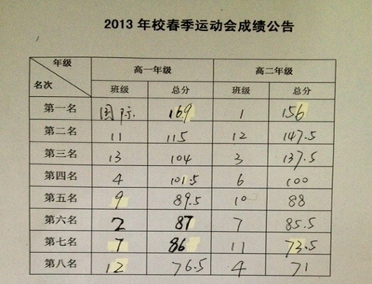 2013 年校春季运动会成绩公告
年级 高一年级 高二年级
名次 班级 总分 班级 总分
第一名 国际 169 1 156
第二名 11 115 12 147.5
第三名 13 104 3 137.5
第四名 4 101.5 6 100
第五名 9 89.5 10 88
第六名 2 87 7 85.5
第七名 7 86 11 73.5
第八名 12 76.5 4 71